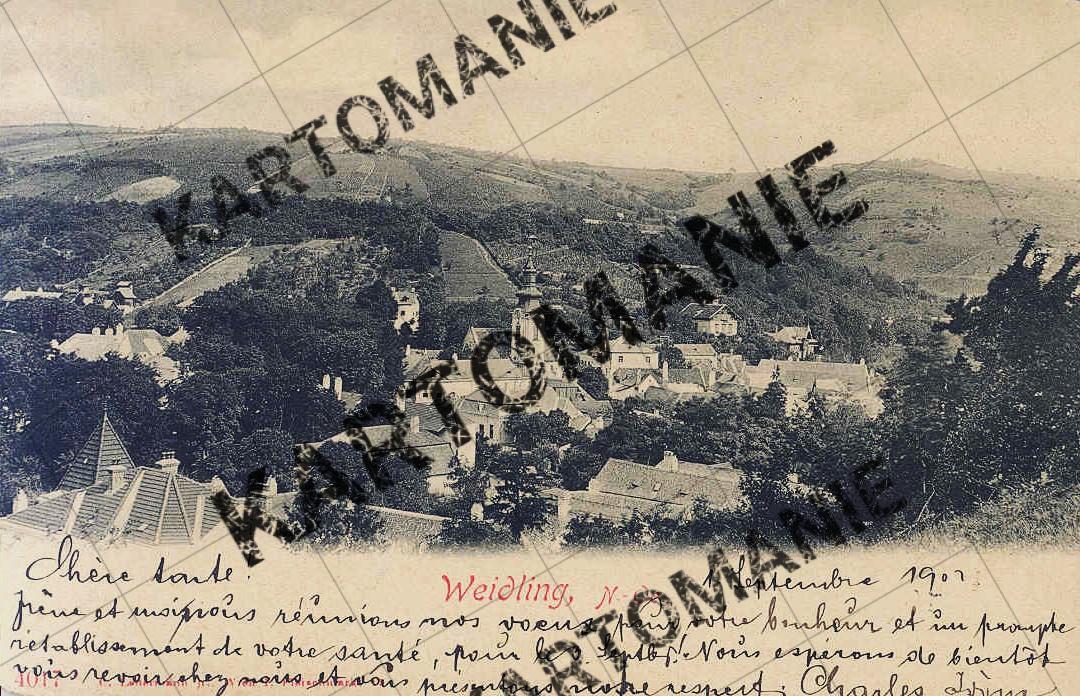 KARTOMANIE
KARTOMANIE
KARTOMANIE
KARTOMANIE
Weidling, N.-Ö.
Chère tante. 1 Septembre 190
et nous réunions nos voeux, pour votre bonheur et un prompte
rétablissement de votre santé, pour le 8 Septbr. Nous espérons de bientôt
vous revoir chez nous et vous présentons notre respect. Charles
4017